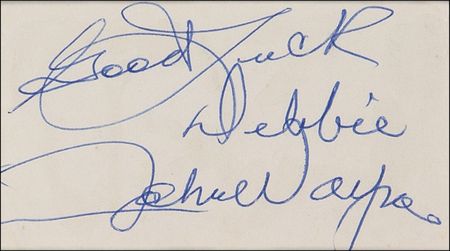 Good Luck
Debbie
John Wayne